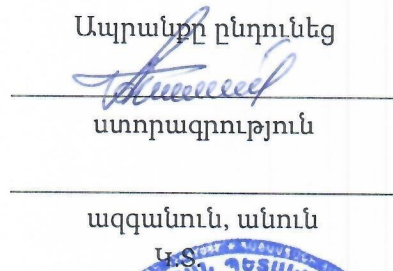 Ապրանքը ընդունեց
ստորագրություն
ազգանուն, անուն
Կ.Տ.